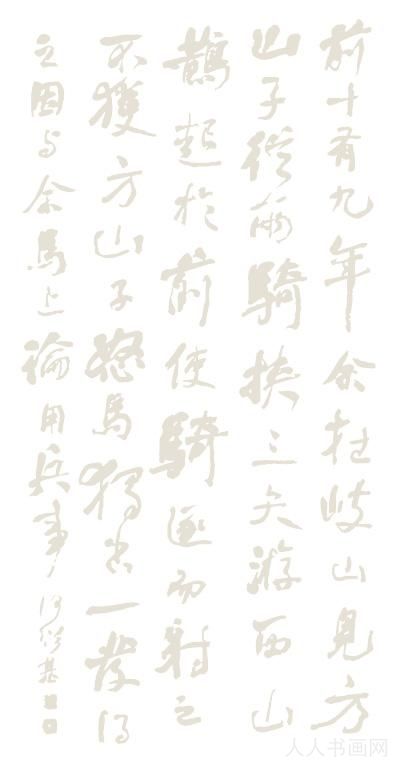 前十有九年余在岐山見方
山子從兩騎挾二矢游西山
鵲起於前使騎逐而射之
不獲方山子怒馬獨出一發得
之因与余馬上論用兵事
何紹基
人人书画网